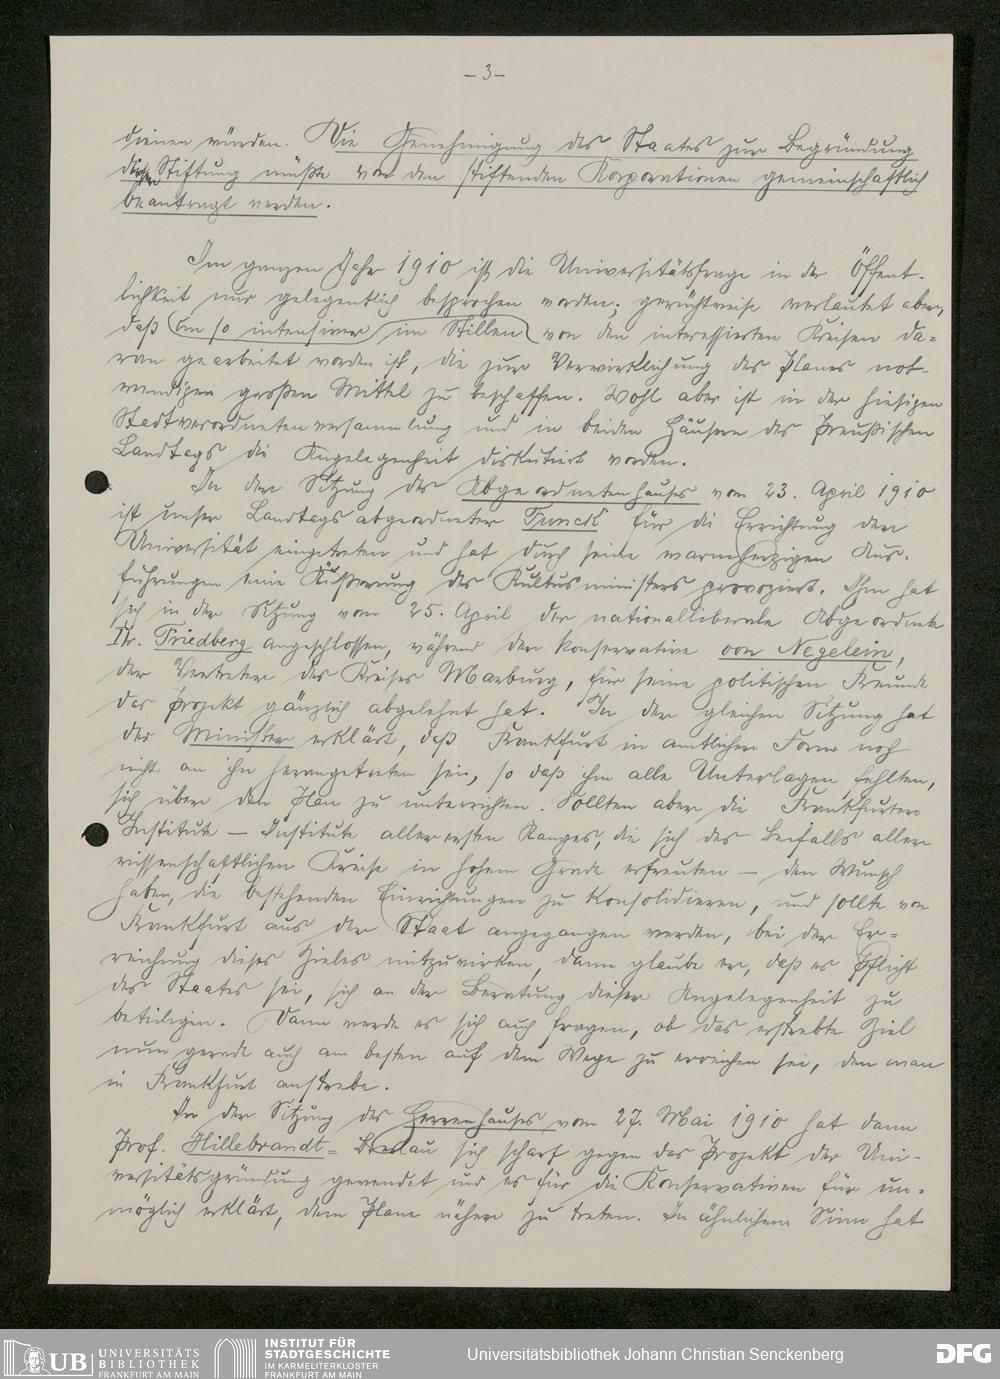 – 3 –
dienen würden. Die Genehmigung des Staates zur Begründung
dieser Stiftung müßte von den stiftenden Korporationen gemeinschaftlich
beantragt werden.
Im ganzen Jahr 1910 ist die Universitätsfrage in der Öffent-
lichkeit nur gelegentlich besprochen worden; gerüchtweise verlautet aber,
daß um so intensiver im Stillen von den interessierten Kreisen da=
ran gearbeitet worden ist, die zur Verwirklichung des Planes not-
wendigen großen Mittel zu beschaffen. Wohl aber ist in der hiesigen
Stadtverordnetenversammlung und in beiden Häusern des Preußischen
Landtags die Angelegenheit diskutiert worden.
In der Sitzung des Abgeordnetenhauses vom 23. April 1910
ist unser Landtagsabgeordneter Funck für die Errichtung der
Universität eingetreten und hat durch seine warmherzigen Aus-
führungen eine Äußerung des Kultusministers provoziert. Ihm hat
sich in der Sitzung vom 25. April der nationalliberale Abgeordnete
Dr. Friedberg angeschlossen, während der konservative von Negelein,
der Vertreter des Kreises Marburg, für seine politischen Freunde
das Projekt gänzlich abgelehnt hat. In der gleichen Sitzung hat
der Minister erklärt, daß Frankfurt in amtlicher Form noch
nicht an ihn herangetreten sei, so daß ihm alle Unterlagen fehlten,
sich über den Plan zu unterrichten. Sollten aber die Frankfurter
Institute – Institute allerersten Ranges, die sich des Beifalls aller
wissenschaftlichen Kreise in hohem Grade erfreuten – den Wunsch
haben, die bestehenden Einrichtungen zu konsolidieren, und sollte von
Frankfurt aus der Staat angegangen werden, bei der Er=
reichung dieses Zieles mitzuwirken, dann glaube er, daß es Pflicht
des Staates sei, sich an der Beratung dieser Angelegenheit zu
beteiligen. Dann werde es sich auch fragen, ob das erstrebte Ziel
nun gerade auch am besten auf dem Wege zu erreichen sei, den man
in Frankfurt anstrebe.
In der Sitzung des Herrenhauses vom 27. Mai 1910 hat dann
Prof. Hillebrandt=Breslau sich scharf gegen das Projekt der Uni-
versitätsgründung gewendet und es für die Konservativen für un-
möglich erklärt, dem Plane näher zu treten. In ähnlichem Sinn hat
UB UNIVERSITÄTS
BIBLIOTHEK
FRANKFURT AM MAIN
INSTITUT FÜR
STADTGESCHICHTE
IM KARMELITERKLOSTER
FRANKFURT AM MAIN
Universitätsbibliothek Johann Christian Senckenberg
DFG